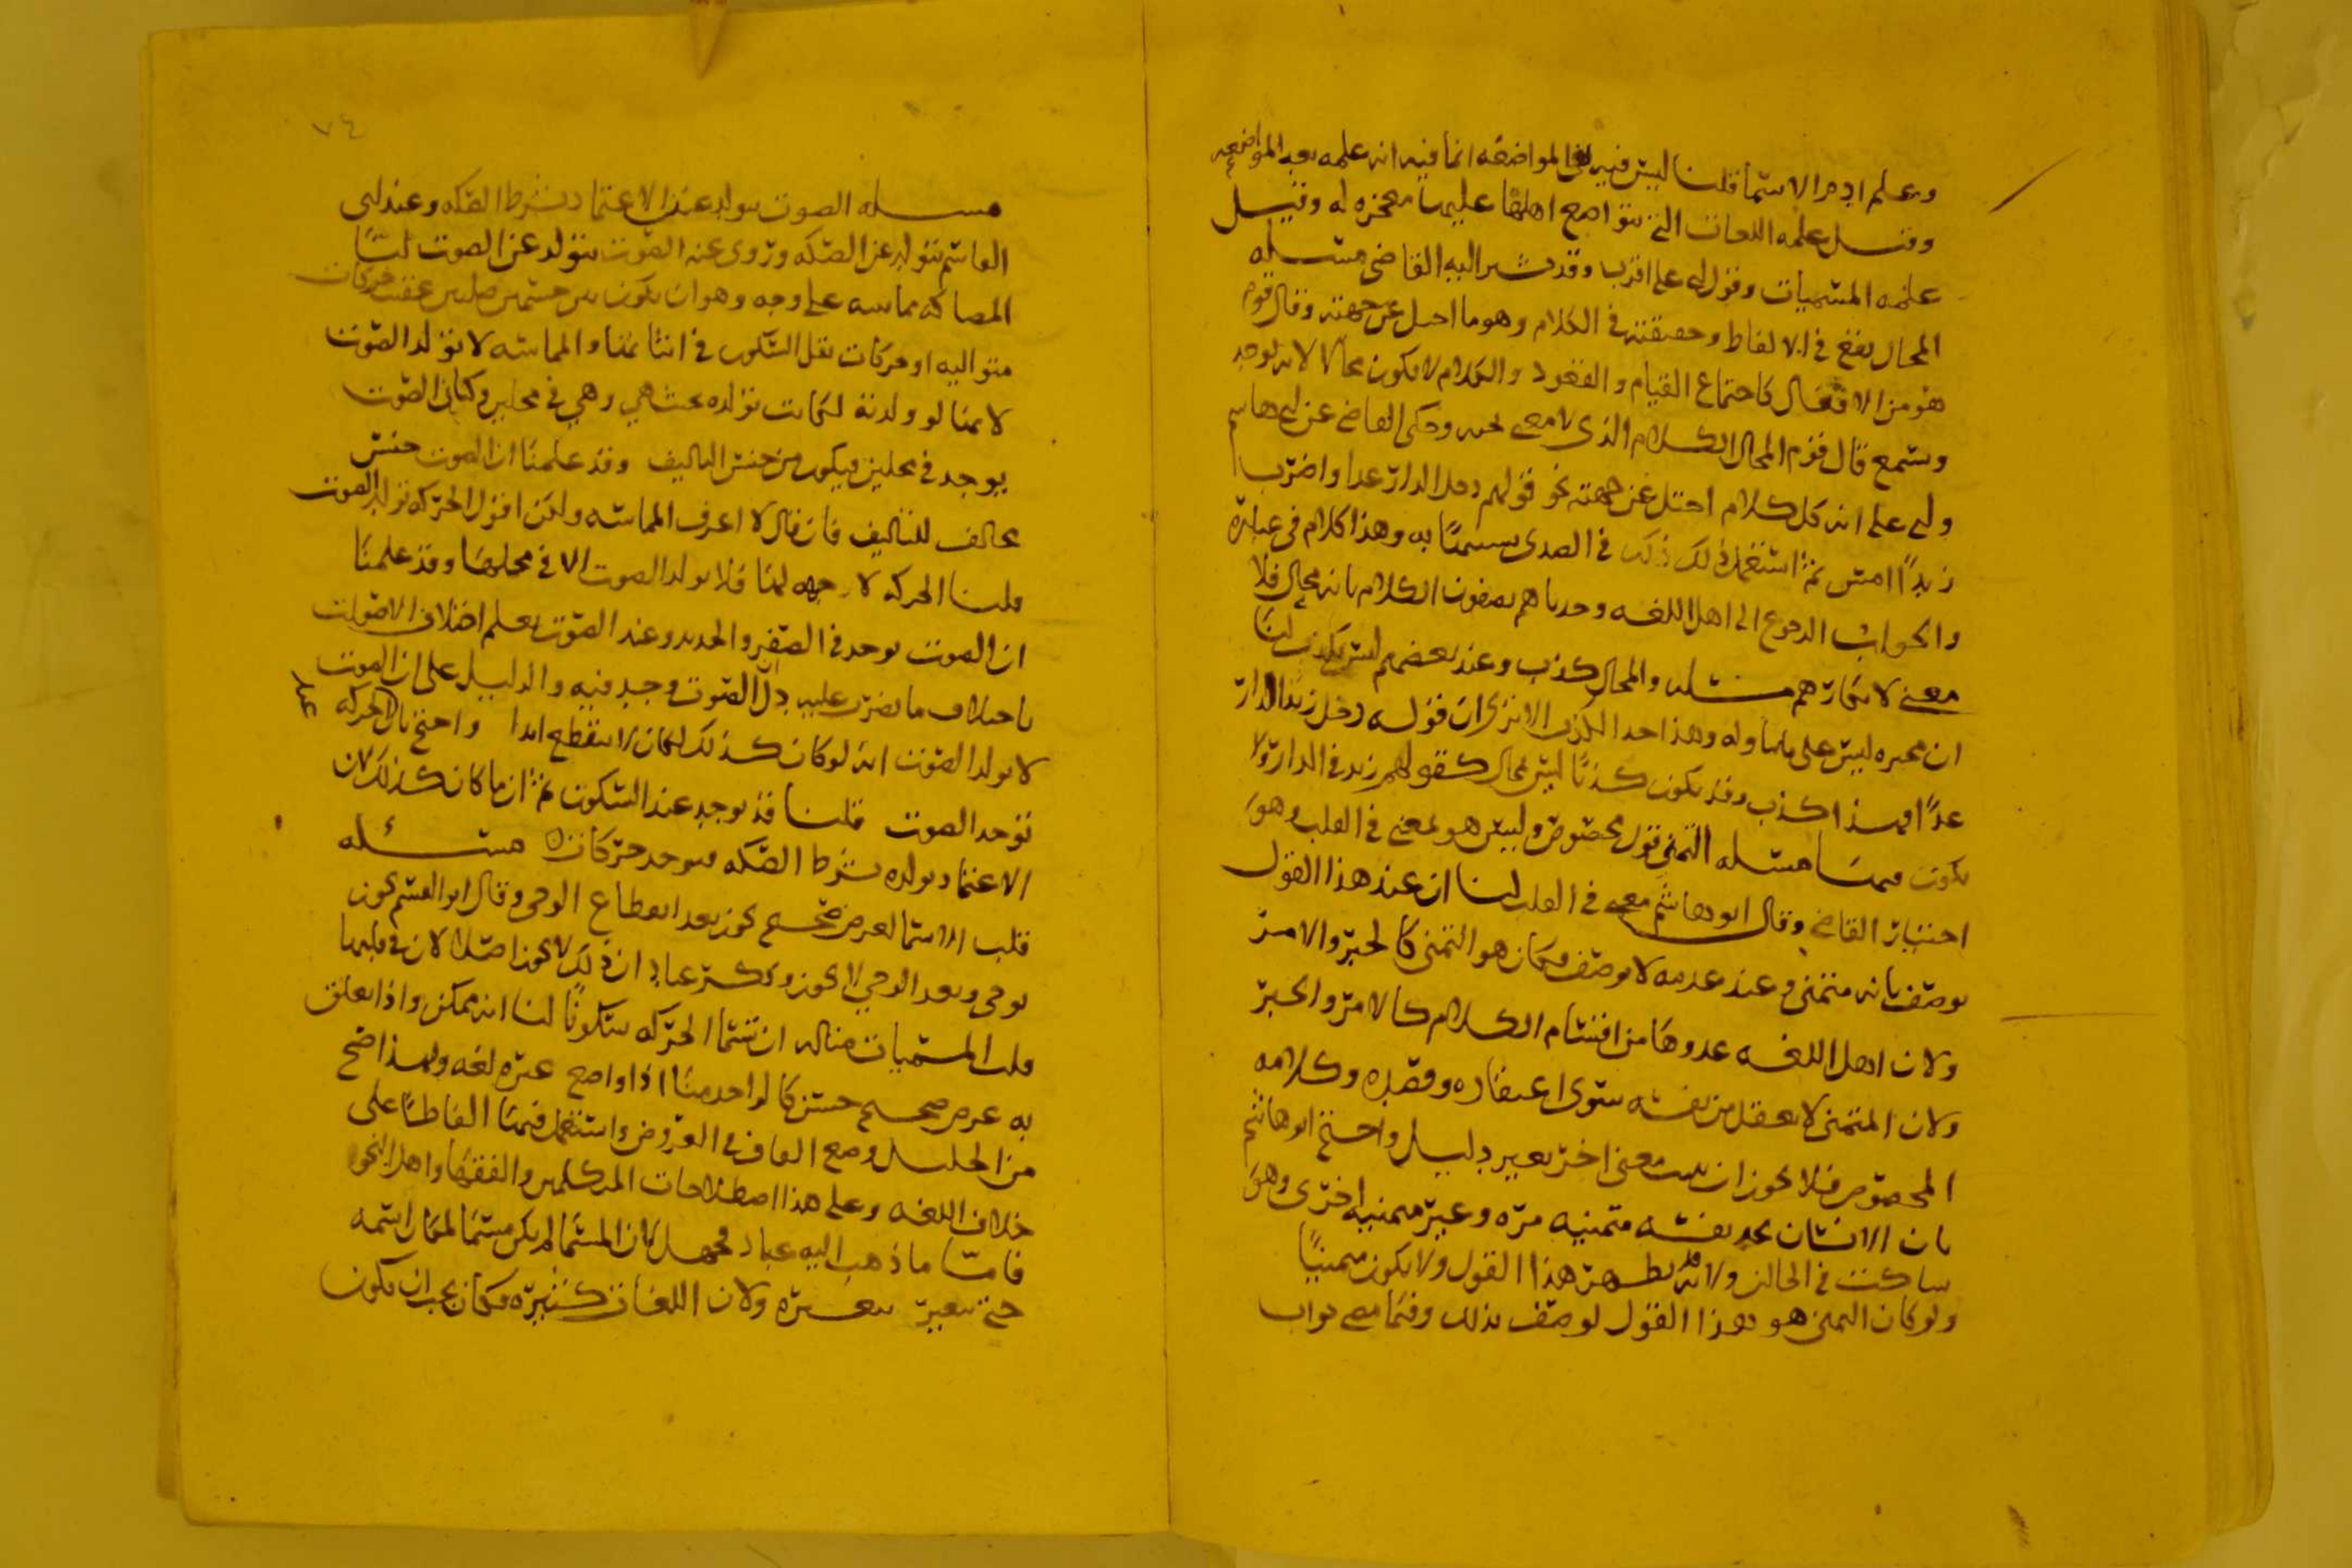 وعلم ادم الاسما قلنا ليس فيه نفي المواضعه انما فيه انه علمه بعد المواضعه
وقيل علمه اللغات التي تتواضع اهلها عليها معجزه له وقيل
علمه المسميات وقوله على اقرب وقد يشير اليه القاضي مسئله
المحال يقع في الالفاظ وحقيقته في الكلام وهو ما احيل عن جهته وقال قوم
هو من الافعال كاجتماع القيام والقعود والكلام لا يكون محالا لانه يوجد
ويسمع قال قوم المحال الكلام الذي لا معنى تحته وحكى القاضي عن ابي هاشم
وابي علي انه كل كلام احيل عن جهته نحو قولهم دخل الدار غدا واضرب
زيدًا امس ثم استعمل في ذلك في الصدى به وهذا كلام في عباره
والجواب الرجوع الى اهل اللغه وجدناهم يصفون الكلام بانه محال فلا
معنى لانكارهم مسئله والمحال كذب وعند بعضهم ليس بكذب لنا
ان مخبره ليس على ما تناوله وهذا حد الكذب الا ترى ان قوله دخل زيد الدار
غدًا فهذا كذب وقد يكون كذبًا ليس بمحال كقولهم زيد في الدار ولا
يكون فيها مسئله التمني قول مخصوص وليس هو بمعنى في القلب وهو
اختيار القاضي وقال ابو هاشم معنى في القلب لنا ان عند هذا القول
يوصف بانه متمني وعند عدمه لا يوصف فكان هو التمني كالخبر والامر
ولان اهل اللغه عدوها من اقسام الكلام كالامر والخبر
ولان المتمني لا يعقل من نفسه سوى اعتقاده وقصده وكلامه
المخصوص فلا يجوز ان يثبت معنى اخر بغير دليل واحتج ابو هاشم
بان الانسان يجد نفسه متمنيه مره وغير متمنيه اخرى وهو
ساكت في الحالين ولانه قد يظهر هذا القول ولا يكون متمنيًا
ولو كان التمني هو هذا القول لوصف بذلك وفيما مضى جواب
٧٤
مسئله الصوت يتولد عندنا عن الاعتماد بشرط الصكه وعند ابي
القاسم يتولد عن الصكه وروي عنه الصوت يتولد عن الصوت لنا
المصاكه مماسه على وجه وهو ان يكون بين جسمين صلبين عقيب حركات
متواليه او حركات يقل السكون في اثنائها والمماسه لا تولد الصوت
لانها لو ولدته لكانت تولده بحيث هي وهي في محلين وكان الصوت
يوجد في محلين فيكون من جنس التاليف وقد علمنا ان الصوت جنس
مخالف للتاليف فان قال لا اعرف المماسه ولكن اقول الحركه تولد الصوت
قلنا الحركه لا جهه لها فلا تولد الصوت الا في محلها وقد علمنا
ان الصوت يوجد في الصفر والحديد وعند الصوت يعلم اختلاف الاصوات
باختلاف ما يضرب عليه دل الصوت وجد فيه والدليل على ان الصوت
لا يولد الصوت انه لو كان كذلك لكان لا ينقطع ابدا واحتج بان الحركه
توجد الصوت قلنا قد يوجد عند السكون ثم انما كان كذلك لان
الاعتماد يولده بشرط الصكه فيوجد حركات مسئله
قلب الاسما لغرض صحيح يجوز بعد انقطاع الوحي وقال ابو القسم يجوز
بوحي وبعد الوحي لا يجوز وذكر عباد ان ذلك لا يجوز اصلا لان في قلبها
قلب المسميات مثاله ان تسما الحركه سكونًا لنا انه ممكن واذا تعلق
به غرض صحيح حسن كالواحد منا اذا واضع غيره لغه ولهذا صح
من الخليل وضع القاف في العروض واستعمل فيها الفاظا على
خلاف اللغه وعلى هذا اصطلاحات المتكلمين والفقها واهل النحو
فاما ما ذهب اليه عباد فجهل لان المسما لم يكن مسمًا لمكان اسمه
حتى يتغير بتغيره ولان اللغات كثيره فكان يجب ان يكون